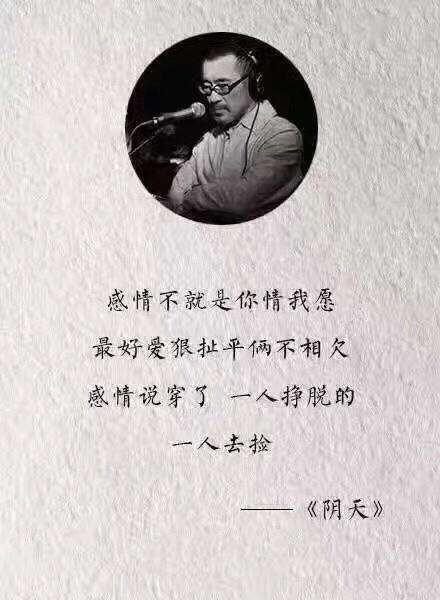 感情不就是你情我愿
最好爱狠扯平俩不相欠
感情说穿了 一人挣脱的
一人去捡
——《阴天》